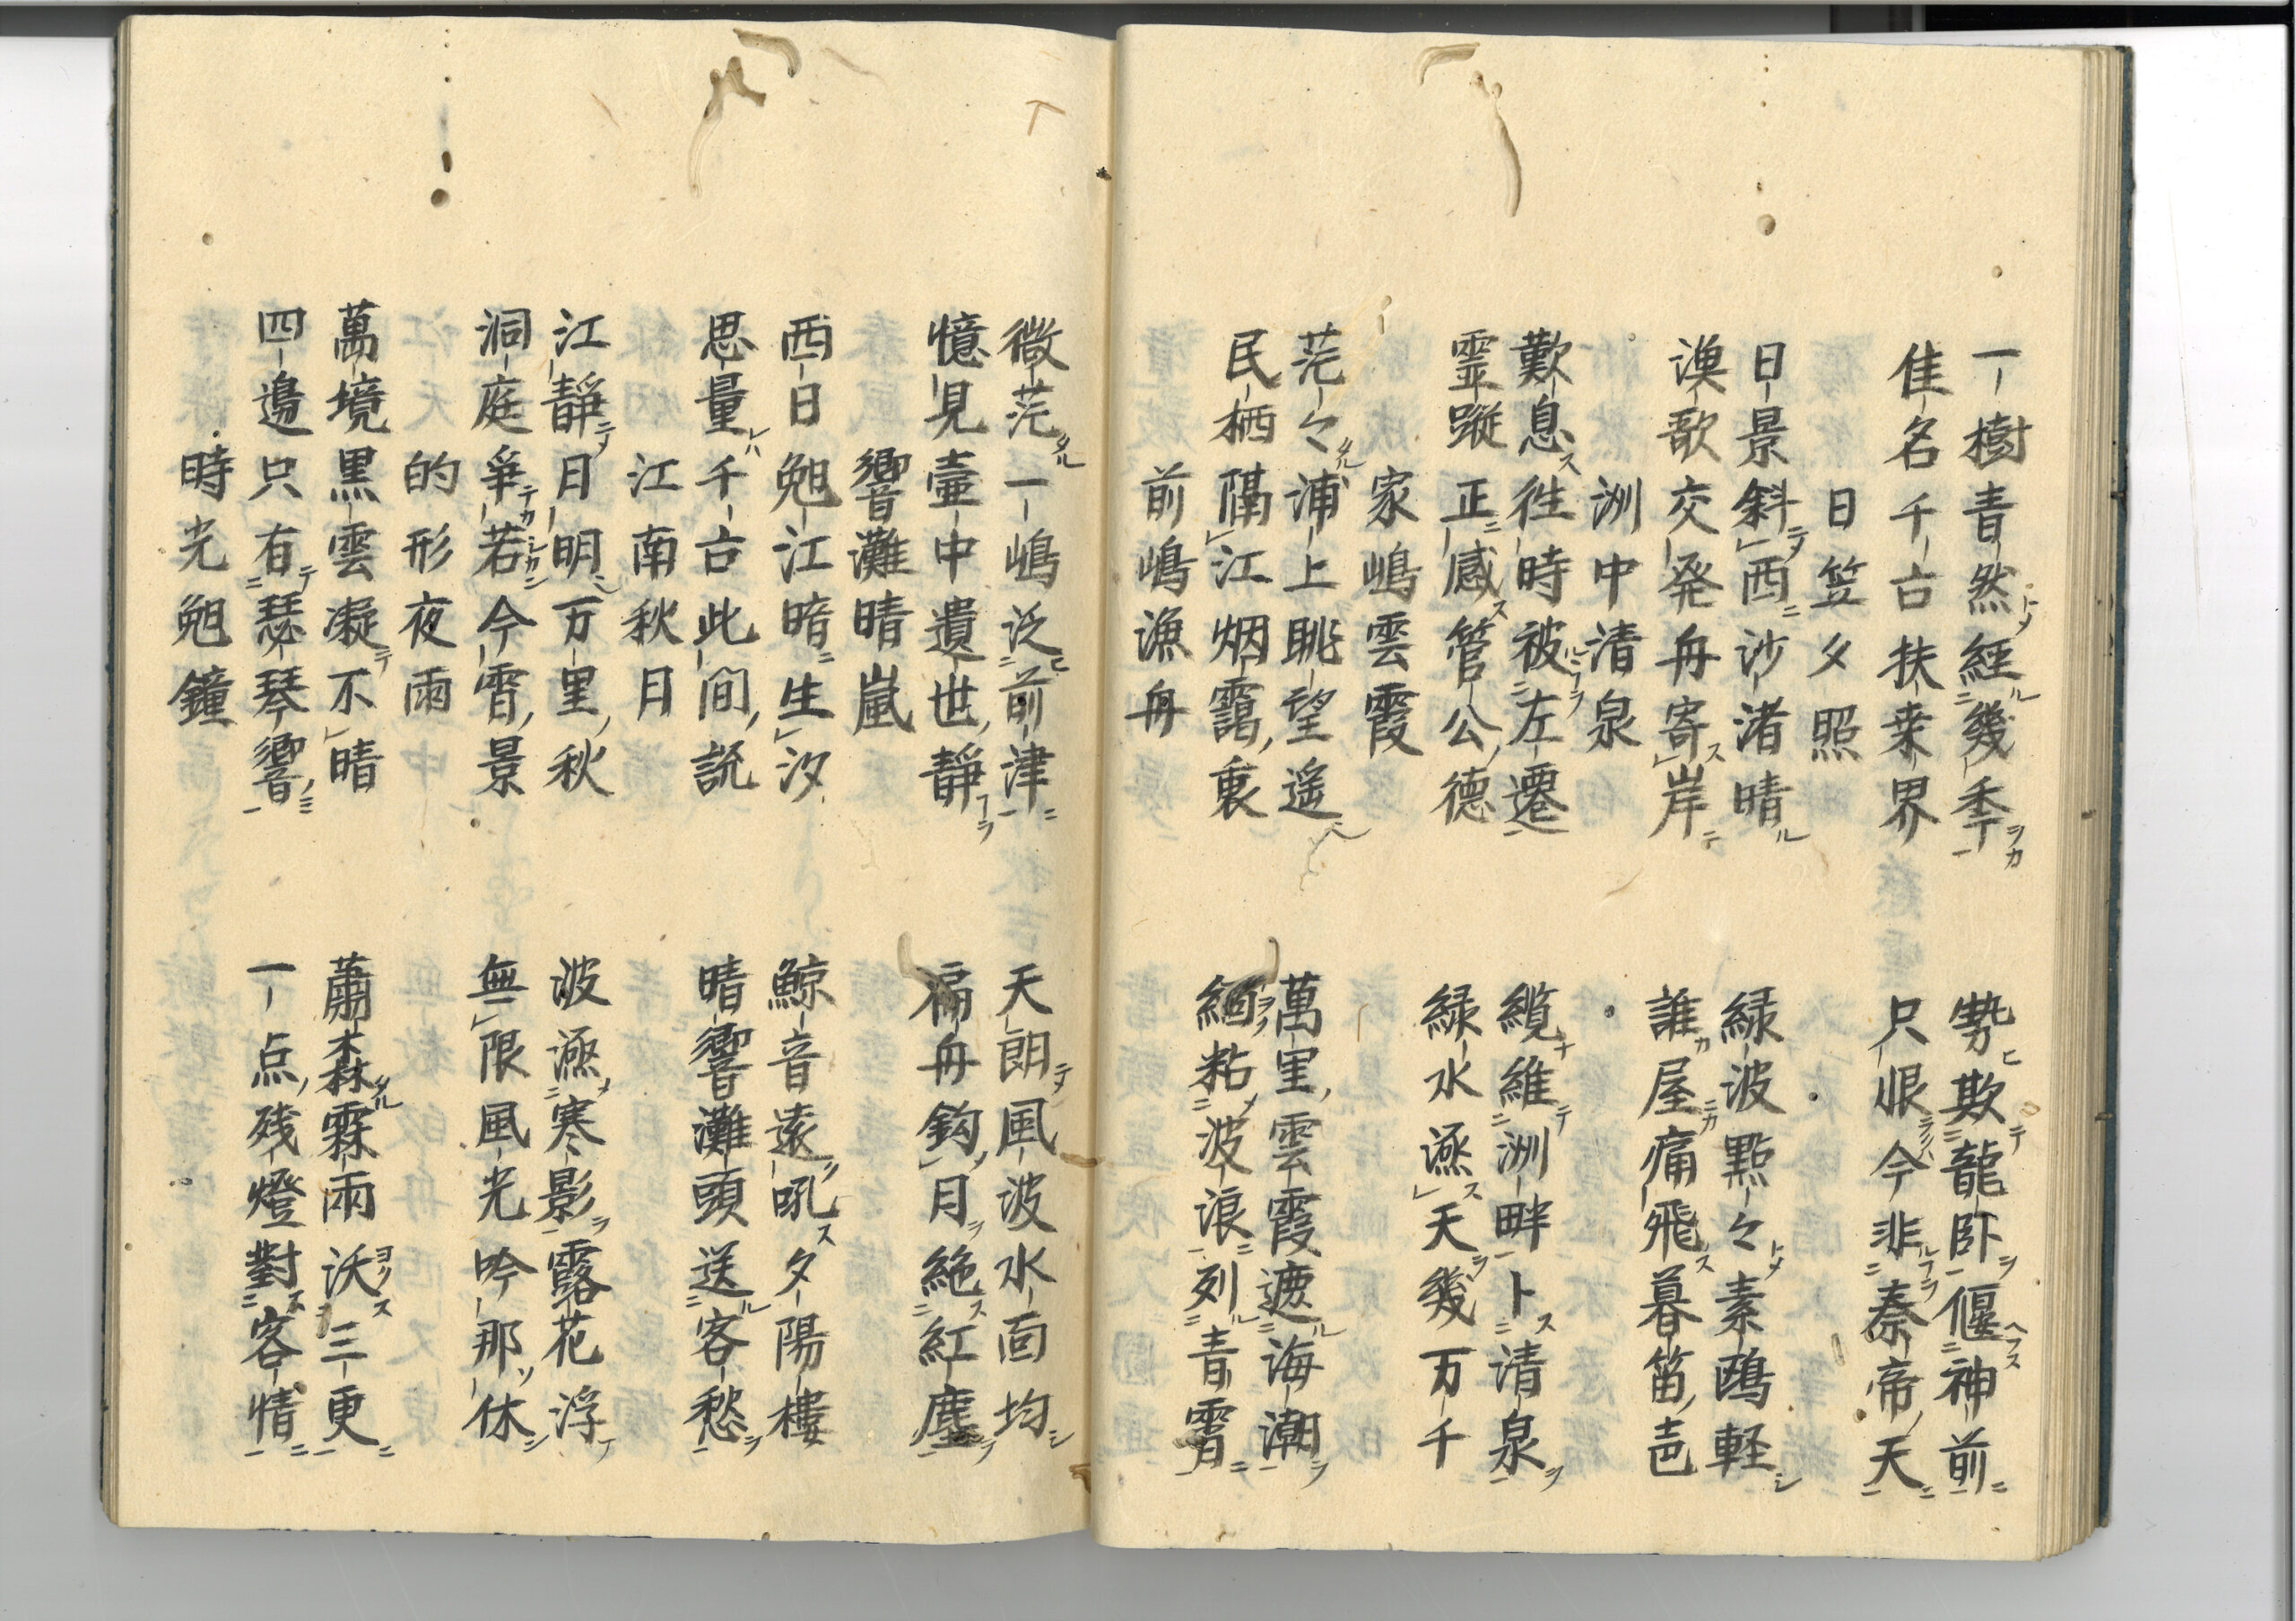 一樹青然經幾季 勢欺龍臥偃神前
佳名千古扶桒界 只恨今非秦帝天
日笠夕照
日景斜西沙渚晴 緑波點々素鴎軽
漁歌交発舟寄岸 誰屋痛飛暮笛声
洲中清泉
歎息徃時被左遷 纜維洲畔卜清泉
霊蹤正感管公德 緑水涵天幾万千
家嶋雲霞
茫々浦上眺望遥 萬里雲霞遮海潮
民栖隔江烟靄裏 緬粘波浪列青霄
前嶋漁舟
微茫一嶋泛前津 天朗風波水面均
憶見壷中遺世静 扁舟鈎月絶紅塵
響灘晴嵐
西日勉江暗生汐 鯨音遠吼夕陽樓
思量千古此間説 晴響灘頭送客愁
江南秋月
江靜日明万里秋 波涵寒影露花浮
洞庭爭若今宵景 無限風光吟那休
的形夜雨
萬境黒雲凝不晴 蕭森霖雨沃三更
四邉只有瑟琴響 一点残燈對客情
時光勉鐘